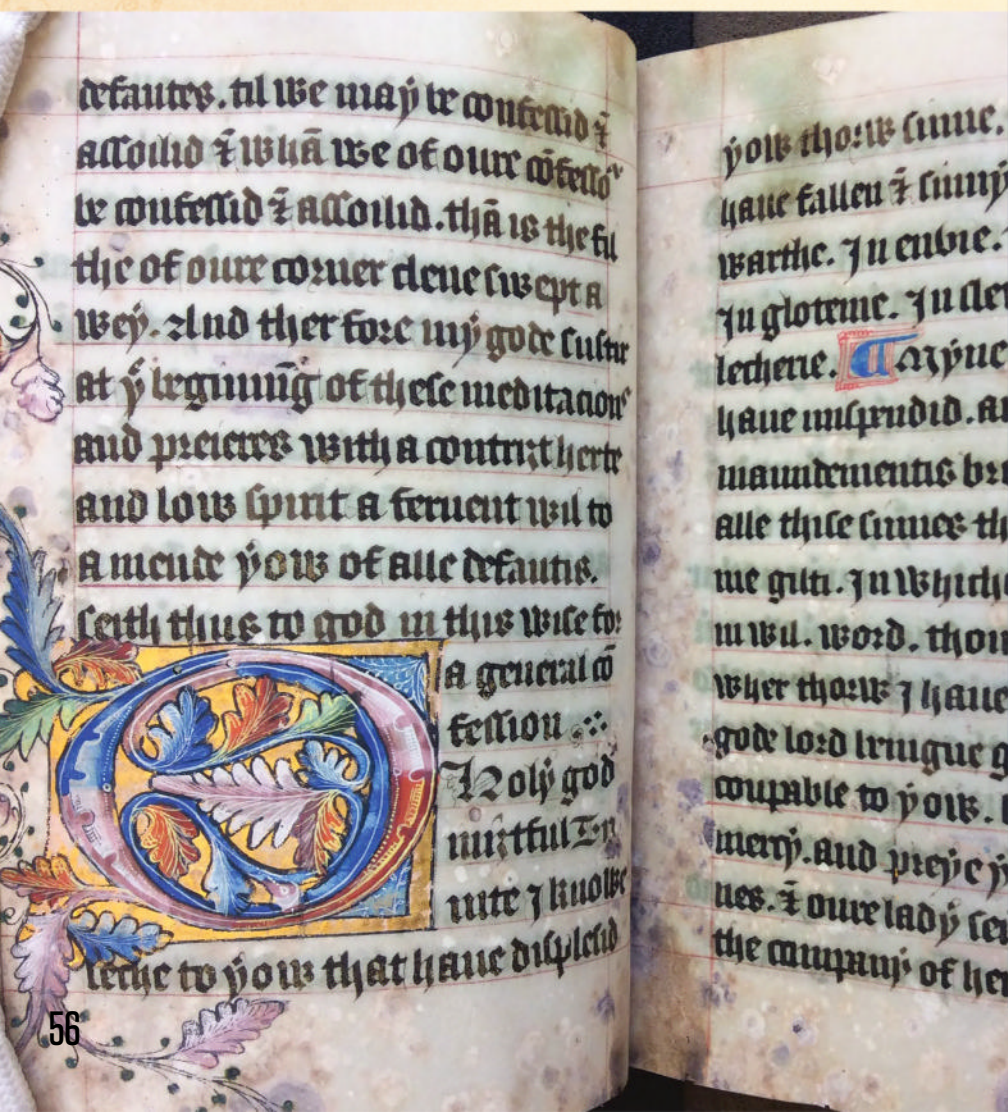 defautes. til we may be confessid ⁊
assoilid ⁊ whā we of oure cōfesso
be confessid ⁊ assoilid. thā is the fil
the of oure corner clene swept a
wey. And ther fore my gode suster
at þͤ beginnīg of these meditacions
and preieres with a contrit herte
and low spirit a feruent wil to
a mende yow of alle defautis.
seith thus to god in this wise for
a general cō
fession
O Holy god
Tri
nite I knowe
leche to yow that haue displesid
yow thorw sinne.
haue fallen ⁊
warthe. In enuie.
In glotenie. In
lecherie. A Myne
haue mispendid.
maundementis
alle thise sinnes
me gilti. In which
in wil. word.
wher thorw I haue
gode lord
coupable to yow.
mercy. and preye
nes. ⁊ oure lady
the cumpany of
56